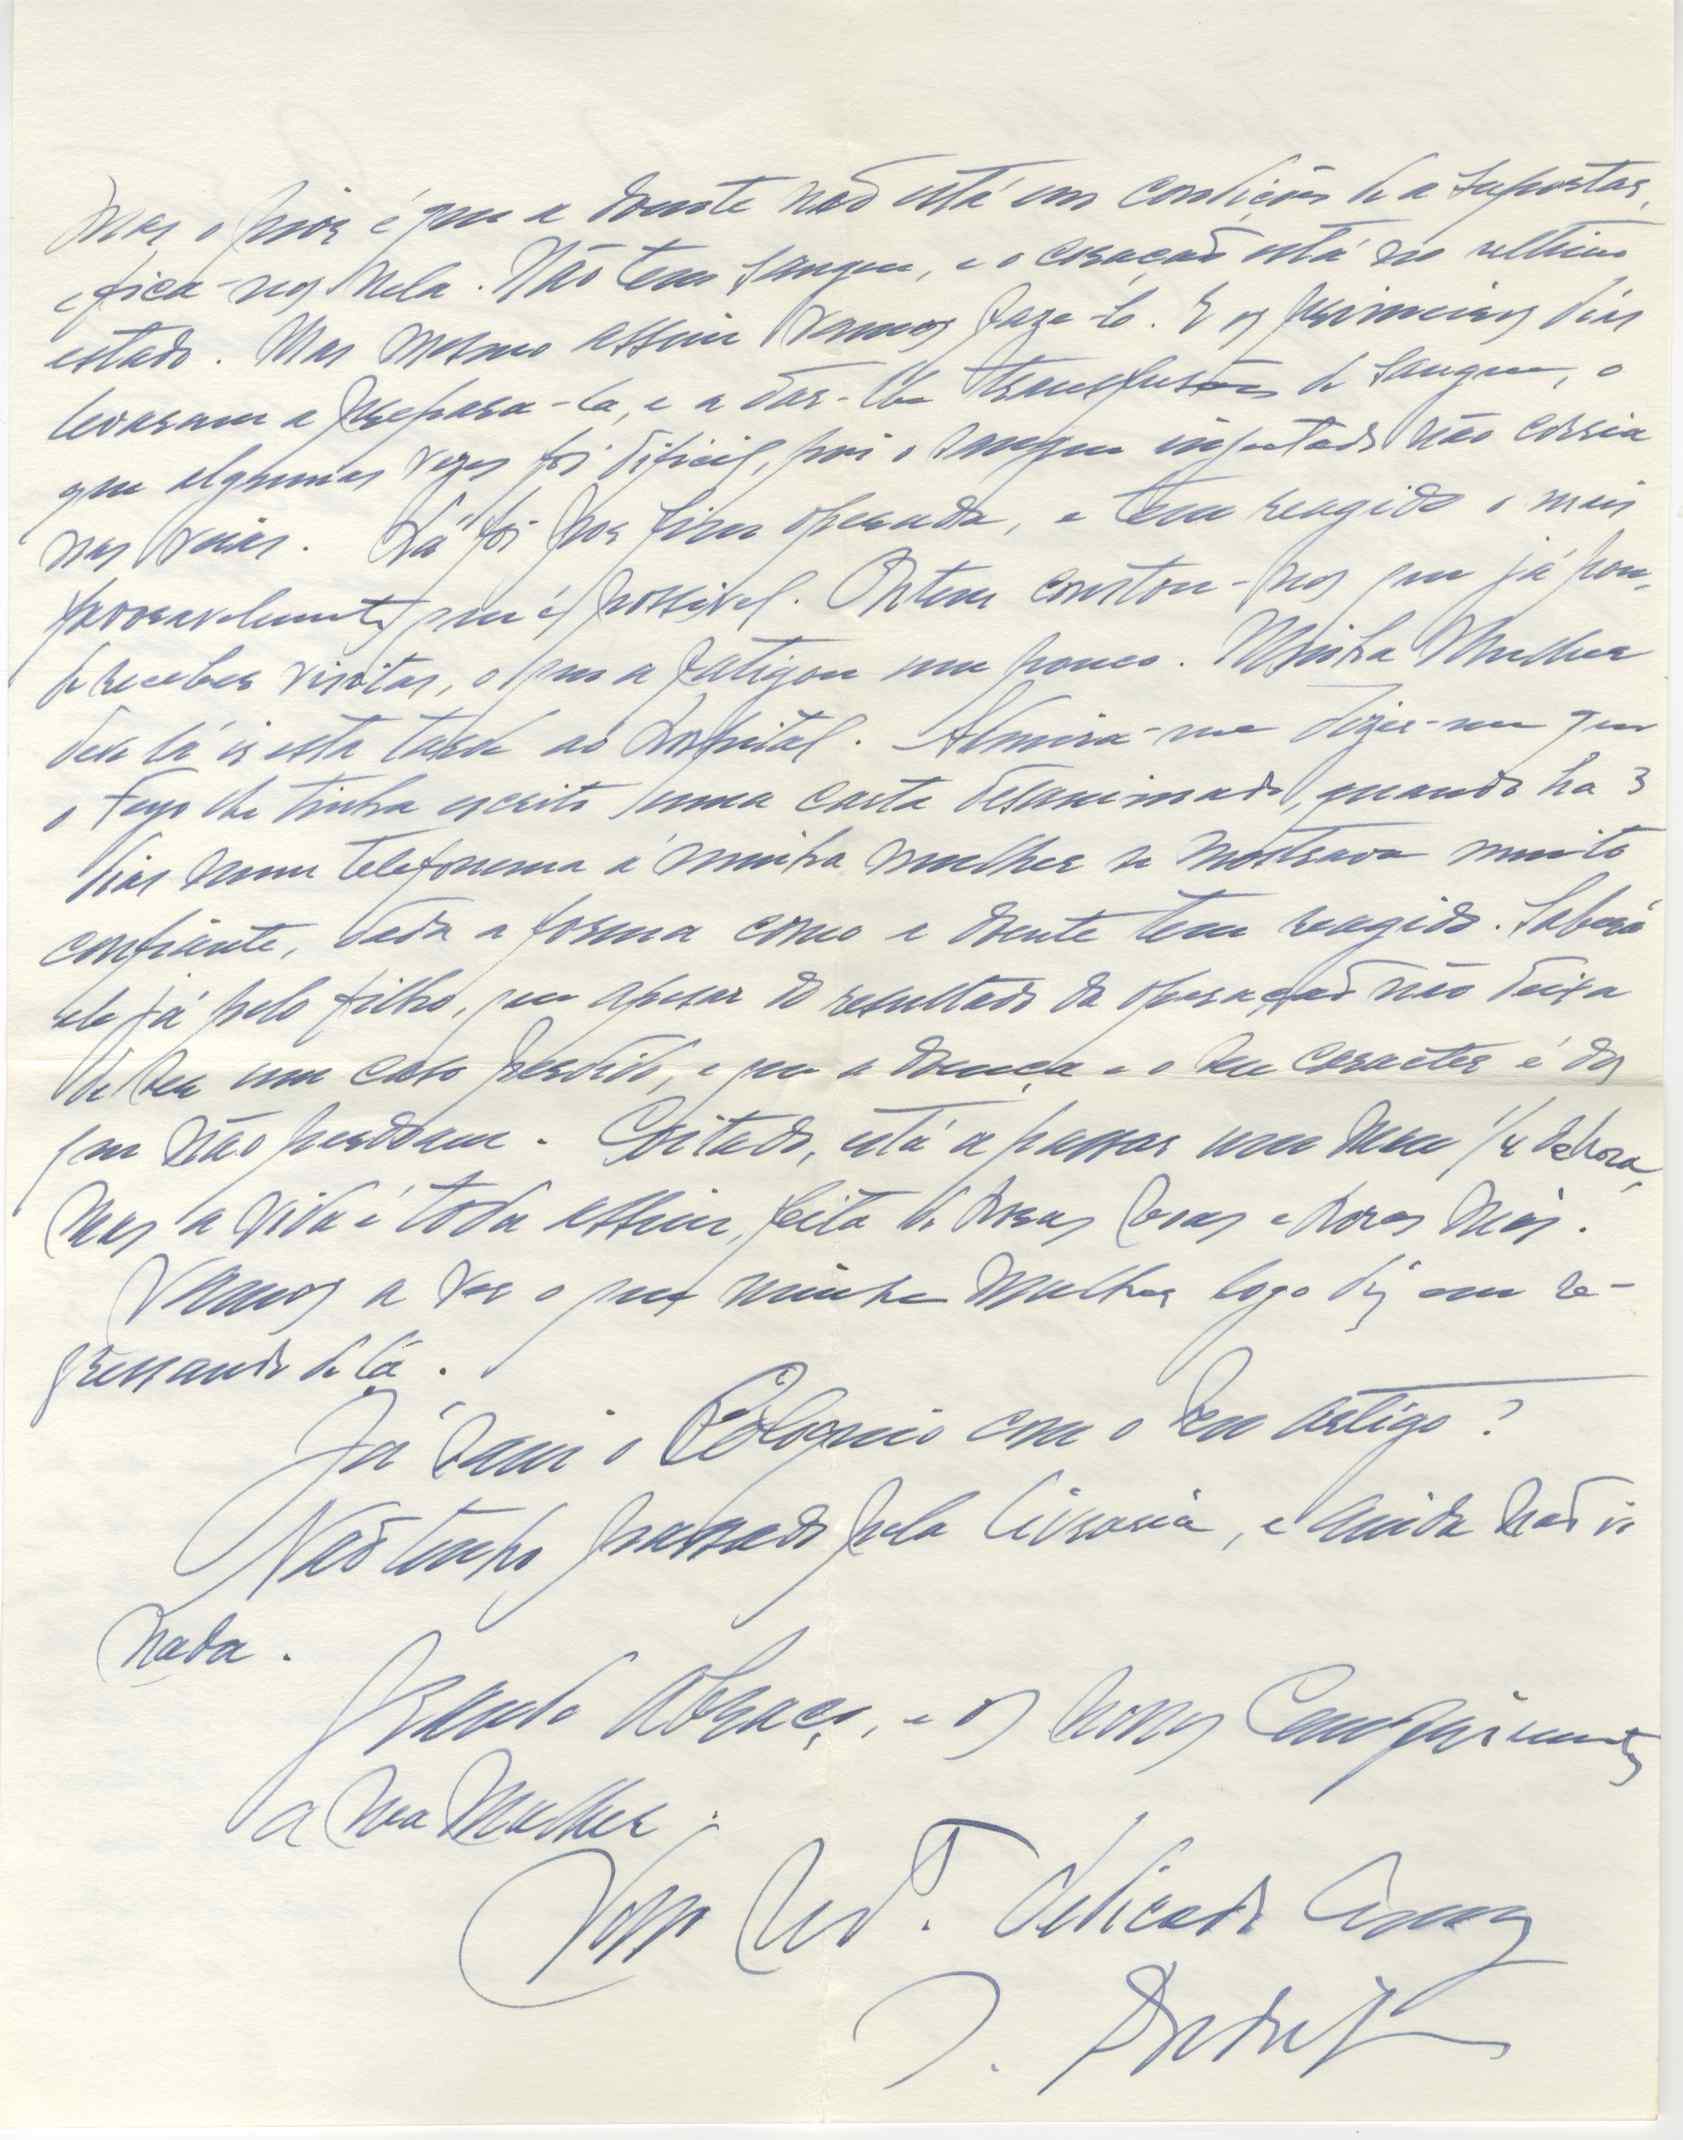 Mas o pior é que a doente não está em condições de a suportar,
e fica-nos nela. Não tem sangue, e o coração está no ultimo
estado. Mas mesmo assim vamos faze-lo. E os primeiros dias
levaram a prepara-la, e a dar-lhe transfusões de sangue, o
que algumas vezes foi dificil, pois o sangue injectado não corria
nas veias. Lá foi por fim operada, e tem reagido o mais
favoravelmente que é possivel. Ontem constou-nos que já pou-
de receber visitas, o que a fatigou um pouco. Minha Mulher
deve lá ir esta tarde ao Hospital. Admira-me dizer-me que
o lhe tinha escrito uma carta desanimado, quando ha 3
dias num telefonema á minha mulher se mostrava muito
confiante, dada a forma como a doente tem reagido. Saberá
ele já pelo filho, que apesar do resultado da operação não deixa
de ser um caso perdido, e que a doença e o seu caracter é dos
que não perdoam. Coitado, está a passar um mau 1/4 de hora,
mas a vida é toda assim, feita de horas boas e horas más.
Vamos a ver o que minha Mulher logo diz em re-
gressando de lá.
Já saiu o Coloquio com o seu artigo?
Não tenho passado pela livraria, e ainda não vi
nada.
Grande Abraço, e os nossos Cumprimentos
a sua Mulher.
Vosso dedicado
J.